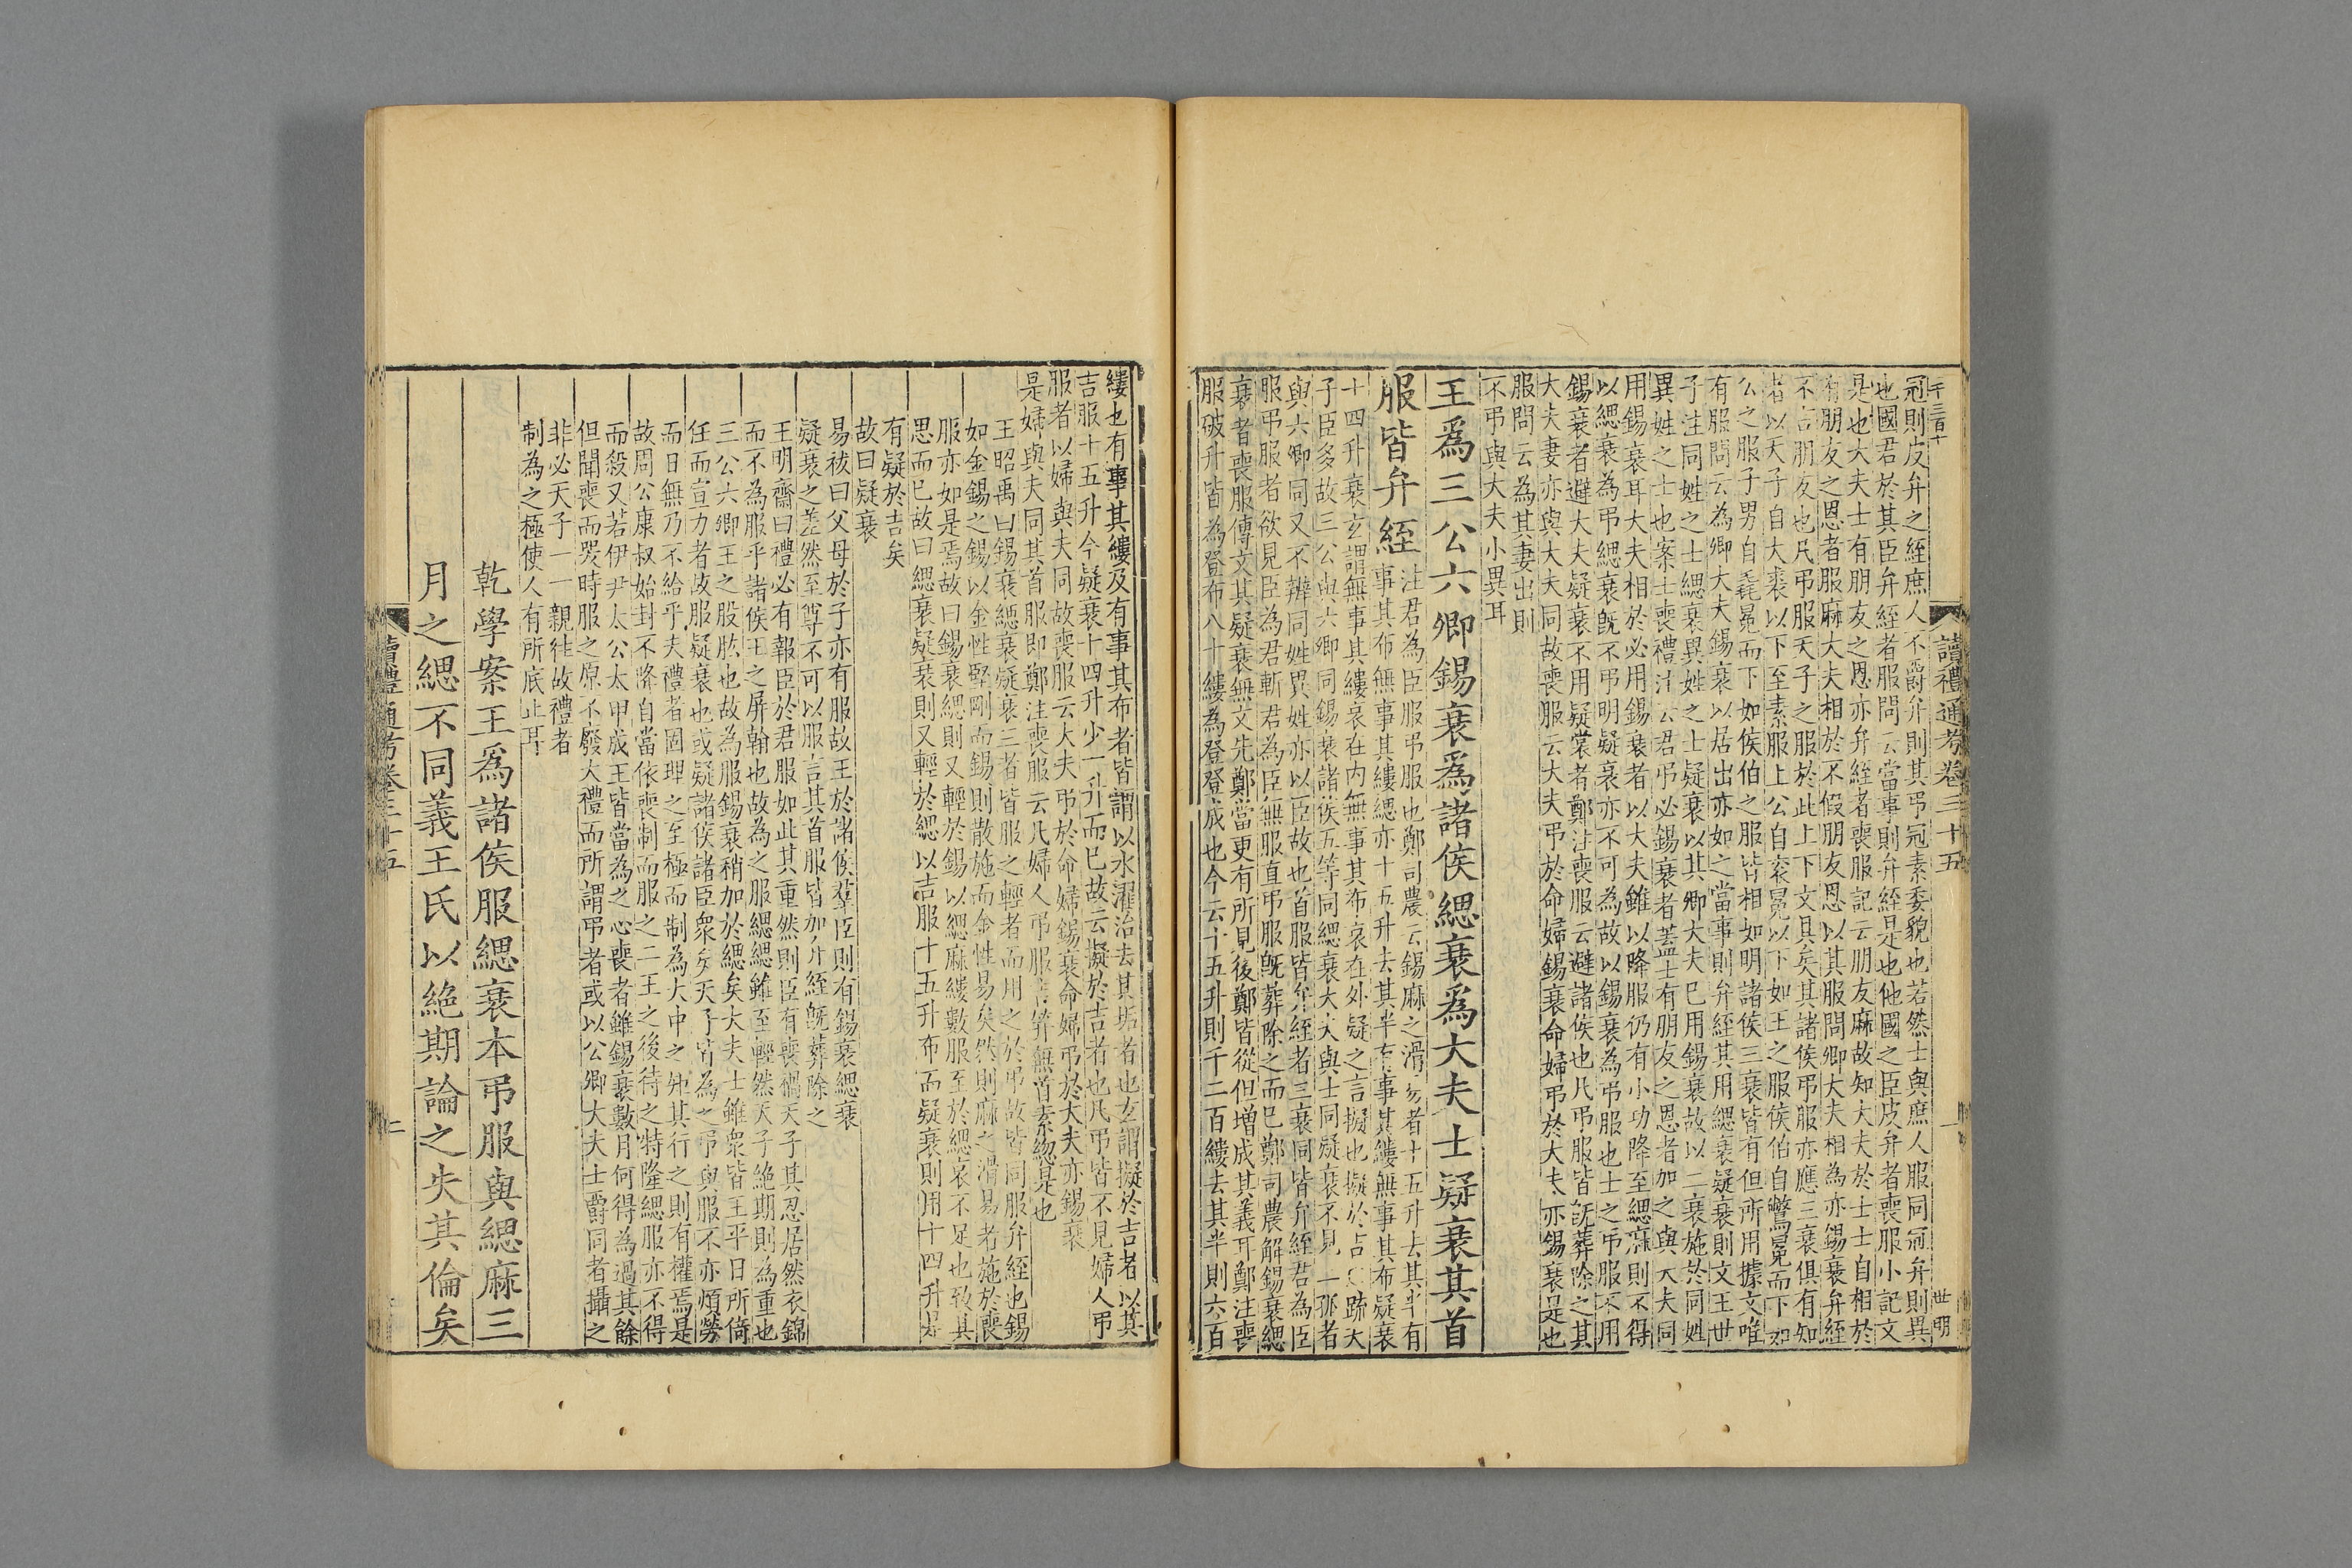 千三百十
讀禮通考卷三十五
一
世明
冠則皮弁之絰庶人不爵弁則其弔冠素委貌也若然士與庶人服同冠弁則異
也國君於其臣弁絰者服問云當事則弁絰是也他國之臣皮弁者喪服小記文
是也大夫士有朋友之恩亦弁絰者喪服記云朋友麻故知大夫於士士自相於
有朋友之恩者服麻大夫相於不假朋友恩以其服問卿大夫相為亦錫衰弁絰
不言朋友也凡弔服天子之服於此上下文具矣其諸侯弔服亦應三衰俱有知
者以天子自大裘以下至素服上公自衮冕以下如王之服侯伯自鷩冕而下如
公之服子男自毳冕而下如侯伯之服皆相如明諸侯三衰皆有但所用據文唯
有服問云為卿大夫錫衰以居出亦如之當事則弁絰其用緦衰疑衰則文王世
子注同姓之士緦衰異姓之士疑衰以其卿大夫已用錫衰故以二衰施於同姓
異姓之士也案士喪禮注云君弔必錫衰者蓋士有朋友之恩者加之與大夫同
用錫衰耳大夫相於必用錫衰者以大夫雖以降服仍有小功降至緦麻則不得
以緦衰為弔緦衰旣不弔明疑衰亦不可為故以錫衰為弔服也士之弔服不用
錫衰者避大夫疑衰不用疑裳者鄭注喪服云避諸侯也凡弔服皆旣葬除之其
大夫妻亦與大夫同故喪服云大夫弔於命婦錫衰命婦弔於大夫亦錫衰是也
服問云為其妻出則
不弔與大夫小異耳
王爲三公六卿錫衰爲諸侯緦衰爲大夫士疑衰其首
服皆弁絰
注君為臣服弔服也鄭司農云錫麻之滑易者十五升去其半有
事其布無事其縷緦亦十五升去其半有事其縷無事其布疑衰
十四升衰玄謂無事其縷哀在内無事其布哀在外疑之言擬也擬於吉 疏大
子臣多故三公與六卿同錫衰諸侯五等同緦衰大夫與士同疑衰不見一孤者
與六卿同又不辨同姓異姓亦以臣故也首服皆弁絰者三衰同皆弁絰君為臣
服弔服者欲見臣為君斬君為臣無服直弔服旣葬除之而已鄭司農解錫衰緦
衰者喪服傳文其疑衰無文先鄭當更有所見後鄭皆從但增成其義耳鄭注喪
服破升皆為登布八十縷為登登成也今云十五升則千二百縷去其半則六百
縷也有事其縷及有事其布者皆謂以水濯治去其垢者也玄謂擬於吉者以其
吉服十五升今疑衰十四升少一升而已故云擬於吉者也凡弔皆不見婦人弔
服者以婦與夫同故喪服云大夫弔於命婦錫衰命婦弔於大夫亦錫衰
是婦與夫同其首服即鄭注喪服云凡婦人弔服吉筓無首素緫是也
王昭禹曰錫衰緦衰疑衰三者皆服之輕者而用之於弔故皆同服弁絰也錫
如金錫之錫以金性堅剛而錫則散施而金性易矣然則麻之滑易者施於喪
服亦如是焉故曰錫衰緦則又輕於錫以緦麻縷數服至於緦哀不足也致其
思而已故曰緦衰疑衰則又輕於緦以吉服十五升布而疑衰則用十四升是
有疑於吉矣
故曰疑衰
易祓曰父母於子亦有服故王於諸侯羣臣則有錫衰緦衰
疑衰之差然至尊不可以服言其首服皆加弁絰旣葬除之
王明齋曰禮必有報臣於君服如此其重然則臣有喪禍天子其忍居然衣錦
而不為服乎諸侯王之屏翰也故為之服緦緦雖至輕然天子絶期則為重也
三公六卿王之股肱也故為服錫衰稍加於緦矣大夫士雖衆皆王平日所倚
任而宣力者故服疑衰也或疑諸侯諸臣衆矣天子皆為之弔與服不亦煩勞
而日無乃不給乎夫禮者因理之至極而制為大中之矩其行之則有權焉是
故周公康叔始封不降自當依喪制而服之二王之後待之特隆緦服亦不得
而殺又若伊尹太公太甲成王皆當為之心喪者雖錫衰數月何得為過其餘
但聞喪而哭時服之原不廢大禮而所謂弔者或以公卿大夫士爵同者攝之
非必天子一一親徃故禮者
制為之極使人有所底止耳
乾學案王爲諸侯服緦衰本弔服與緦麻三
月之緦不同義王氏以絶期論之失其倫矣
讀禮通考卷三十五
二